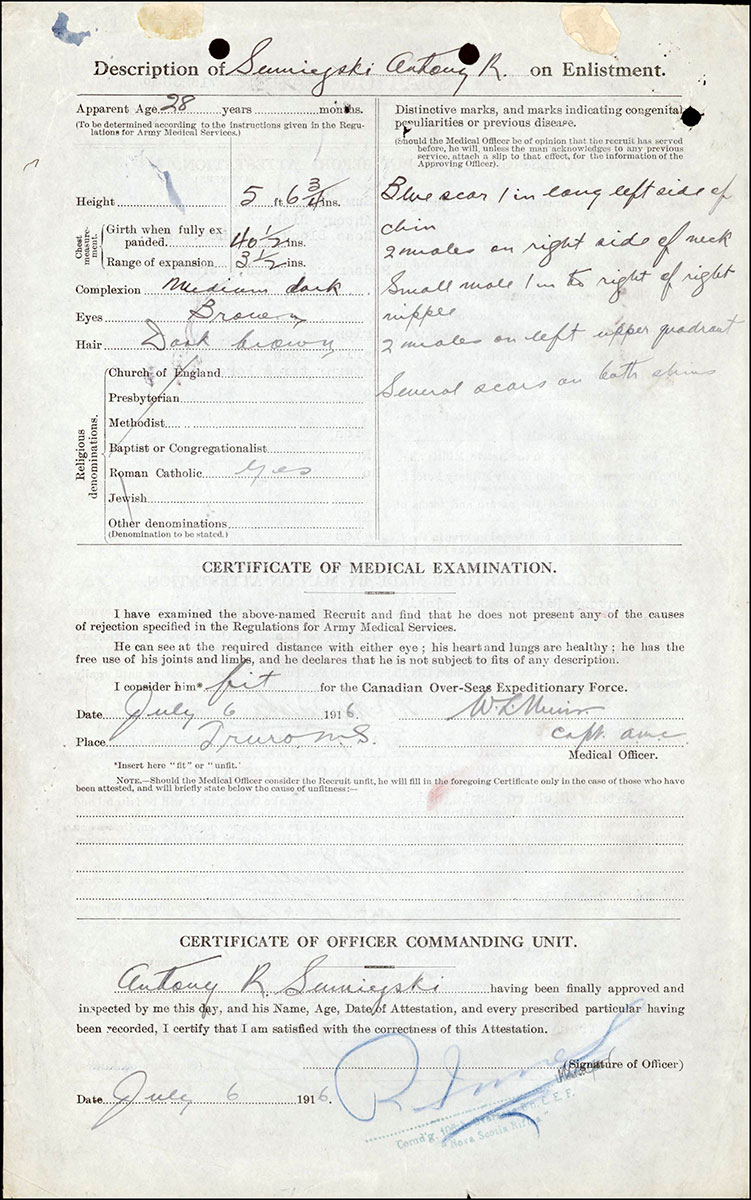 Description of Antony R. on Enlistment.
Apparent Age 28 years months.
(To be determined according to the instructions given in the Regu-
lations for Army Medical Services.)
Height 5 ft. 6 3/4 ins.
Chest measure-ment.
Girth when fully ex-
panded 40 1/2 ins.
Range of expansion 3 1/2 ins.
Complexion Medium dark
Eyes Brown
Hair Dark brown
Religious denominations.
Church of England
Presbyterian
Methodist
Baptist or Congregationalist
Roman Catholic Yes
Jewish
Other denominations
(Denomination to be stated.)
Distinctive marks, and marks indicating congenital
peculiarities or previous disease.
(Should the Medical Officer be of opinion that the recruit has served
before, he will, unless the man acknowledges to any previous
service, attach a slip to that effect, for the information of the
Approving Officer).
Blue scar 1 in long left side of
chin
2 moles on right side of neck
Small mole 1 in to right of right
nipple
2 moles on left upper quadrant
Several scars on both shins
CERTIFICATE OF MEDICAL EXAMINATION.
I have examined the above-named Recruit and find that he does not present any of the causes
of rejection specified in the Regulations for Army Medical Services.
He can see at the required distance with either eye ; his heart and lungs are healthy ; he has the
free use of his joints and limbs, and he declares that he is not subject to fits of any description.
I consider him* fit for the Canadian Over-Seas Expeditionary Force.
Date July 6 1916.
Place Truro N.S.
Capt. amc
Medical Officer.
*Insert here "fit" or "unfit."
NOTE.—Should the Medical Officer consider the Recruit unfit, he will fill in the foregoing Certificate only in the case of those who have
been attested, and will briefly state below the cause of unfitness:—
CERTIFICATE OF OFFICER COMMANDING UNIT.
Antony R. having been finally approved and
inspected by me this day, and his Name, Age, Date of Attestation, and every prescribed particular having
been recorded, I certify that I am satisfied with the correctness of this Attestation.
(Signature of Officer)
Date July 6 1916
Comd'g. C. E. F.
Nova Scotia Rifles